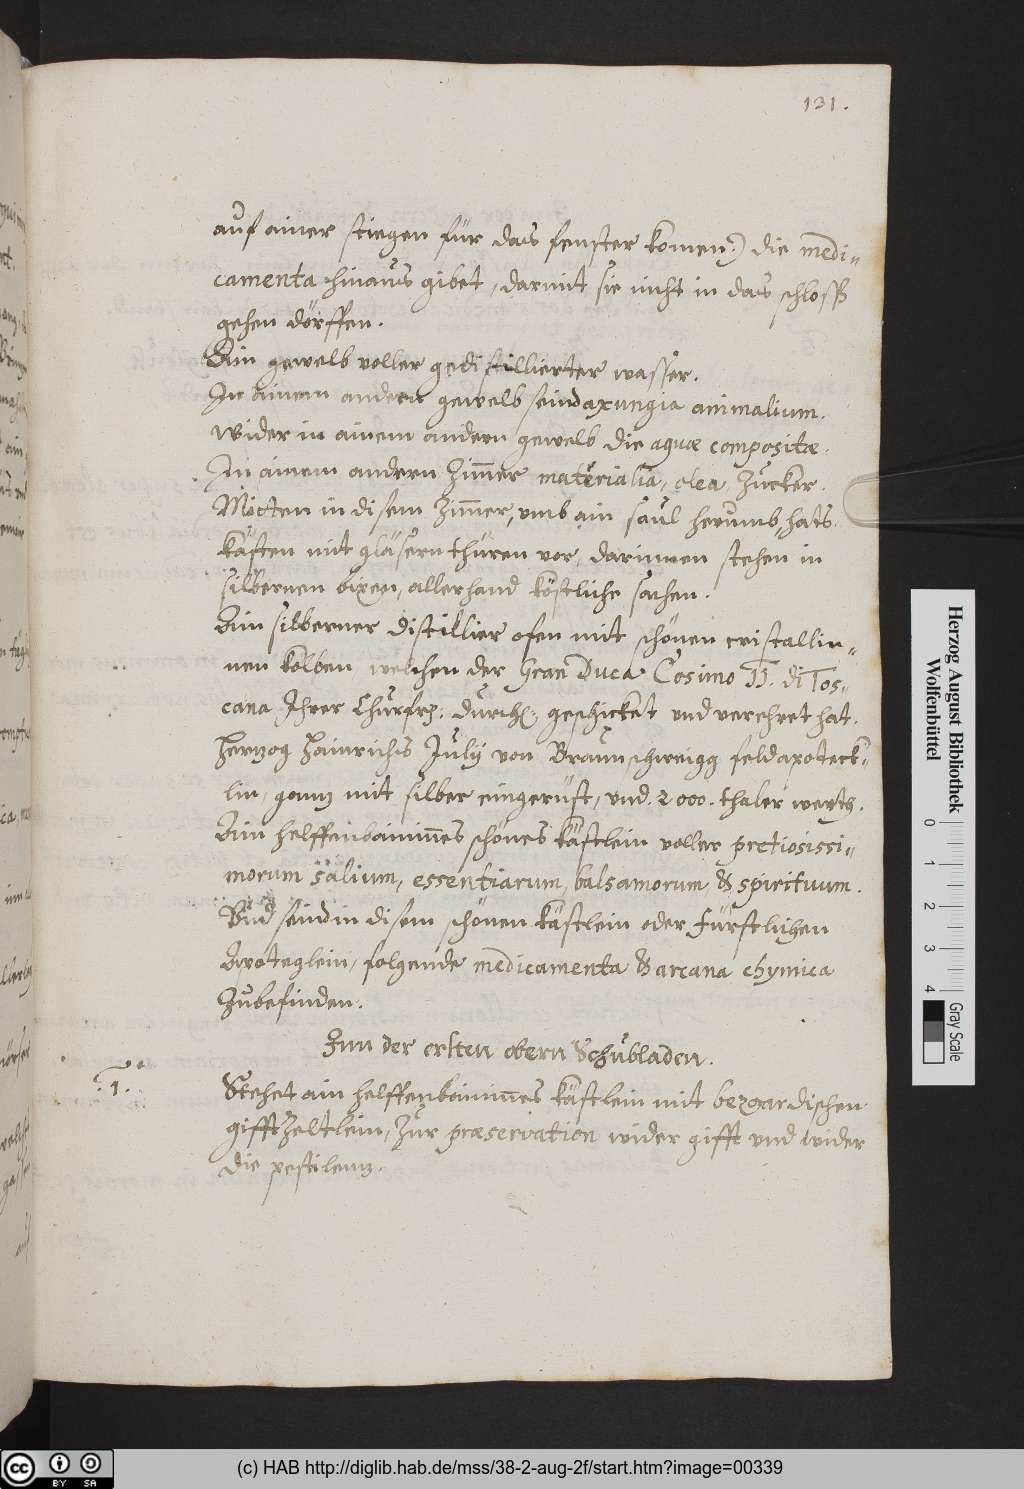 131.
auf ainer stiegen für das fenster komen:) die medi-
camenta hinaus gibet, darmit sie nicht in das schloss
gehen dörffen.
Ain gewelb voller gedistillierter wasser.
In ainem andern gewelb seind axungia animalium.
Wider in ainem andern gewelb die aquæ compositæ.
In ainem andern Zim̄er materialia, olea, Zucker.
Mitten in disem Zim̄er, vmb ain saul herumb, hats
kästen mit gläsern thüren vor, darinnen stehen in
silbernen bixen, allerhand köstliche sachen.
Ain silberner distillier ofen mit schönen cristallin-
nen kolben welchen der Gran Duca Cosimo II. di Tos-
cana Ihrer Churfr: Durchl: geschicket vnd verehret hat.
Hertzog Hainrichs Julij von Braunschweigg feldapoteck-
lin, gantz mit silber eingerüst, vnd 2000. thaler werth.
Ain helffenbainin̄es schönes kästlein voller pretiosissi-
morum salium, essentiarum, balsamorum, & spirituum.
Vnd seind in disem schönen kästlein oder Fürstlichen
Apoteglein, folgende medicamenta & arcana chymica
Zubefinden.
Inn der ersten obern Schubladen.
1.
Stehet ain helffenbainin̄es kästlein mit bezoardischen
gifftZeltlein, Zur præservation wider gifft vnd wider
die pestilentz.
Herzog August Bibliothek
Wolfenbüttel
0 1 2 3 4
Gray Scale
cc BY SA
(c) HAB http://diglib.hab.de/mss/38-2-aug-2f/start.htm?image=00339